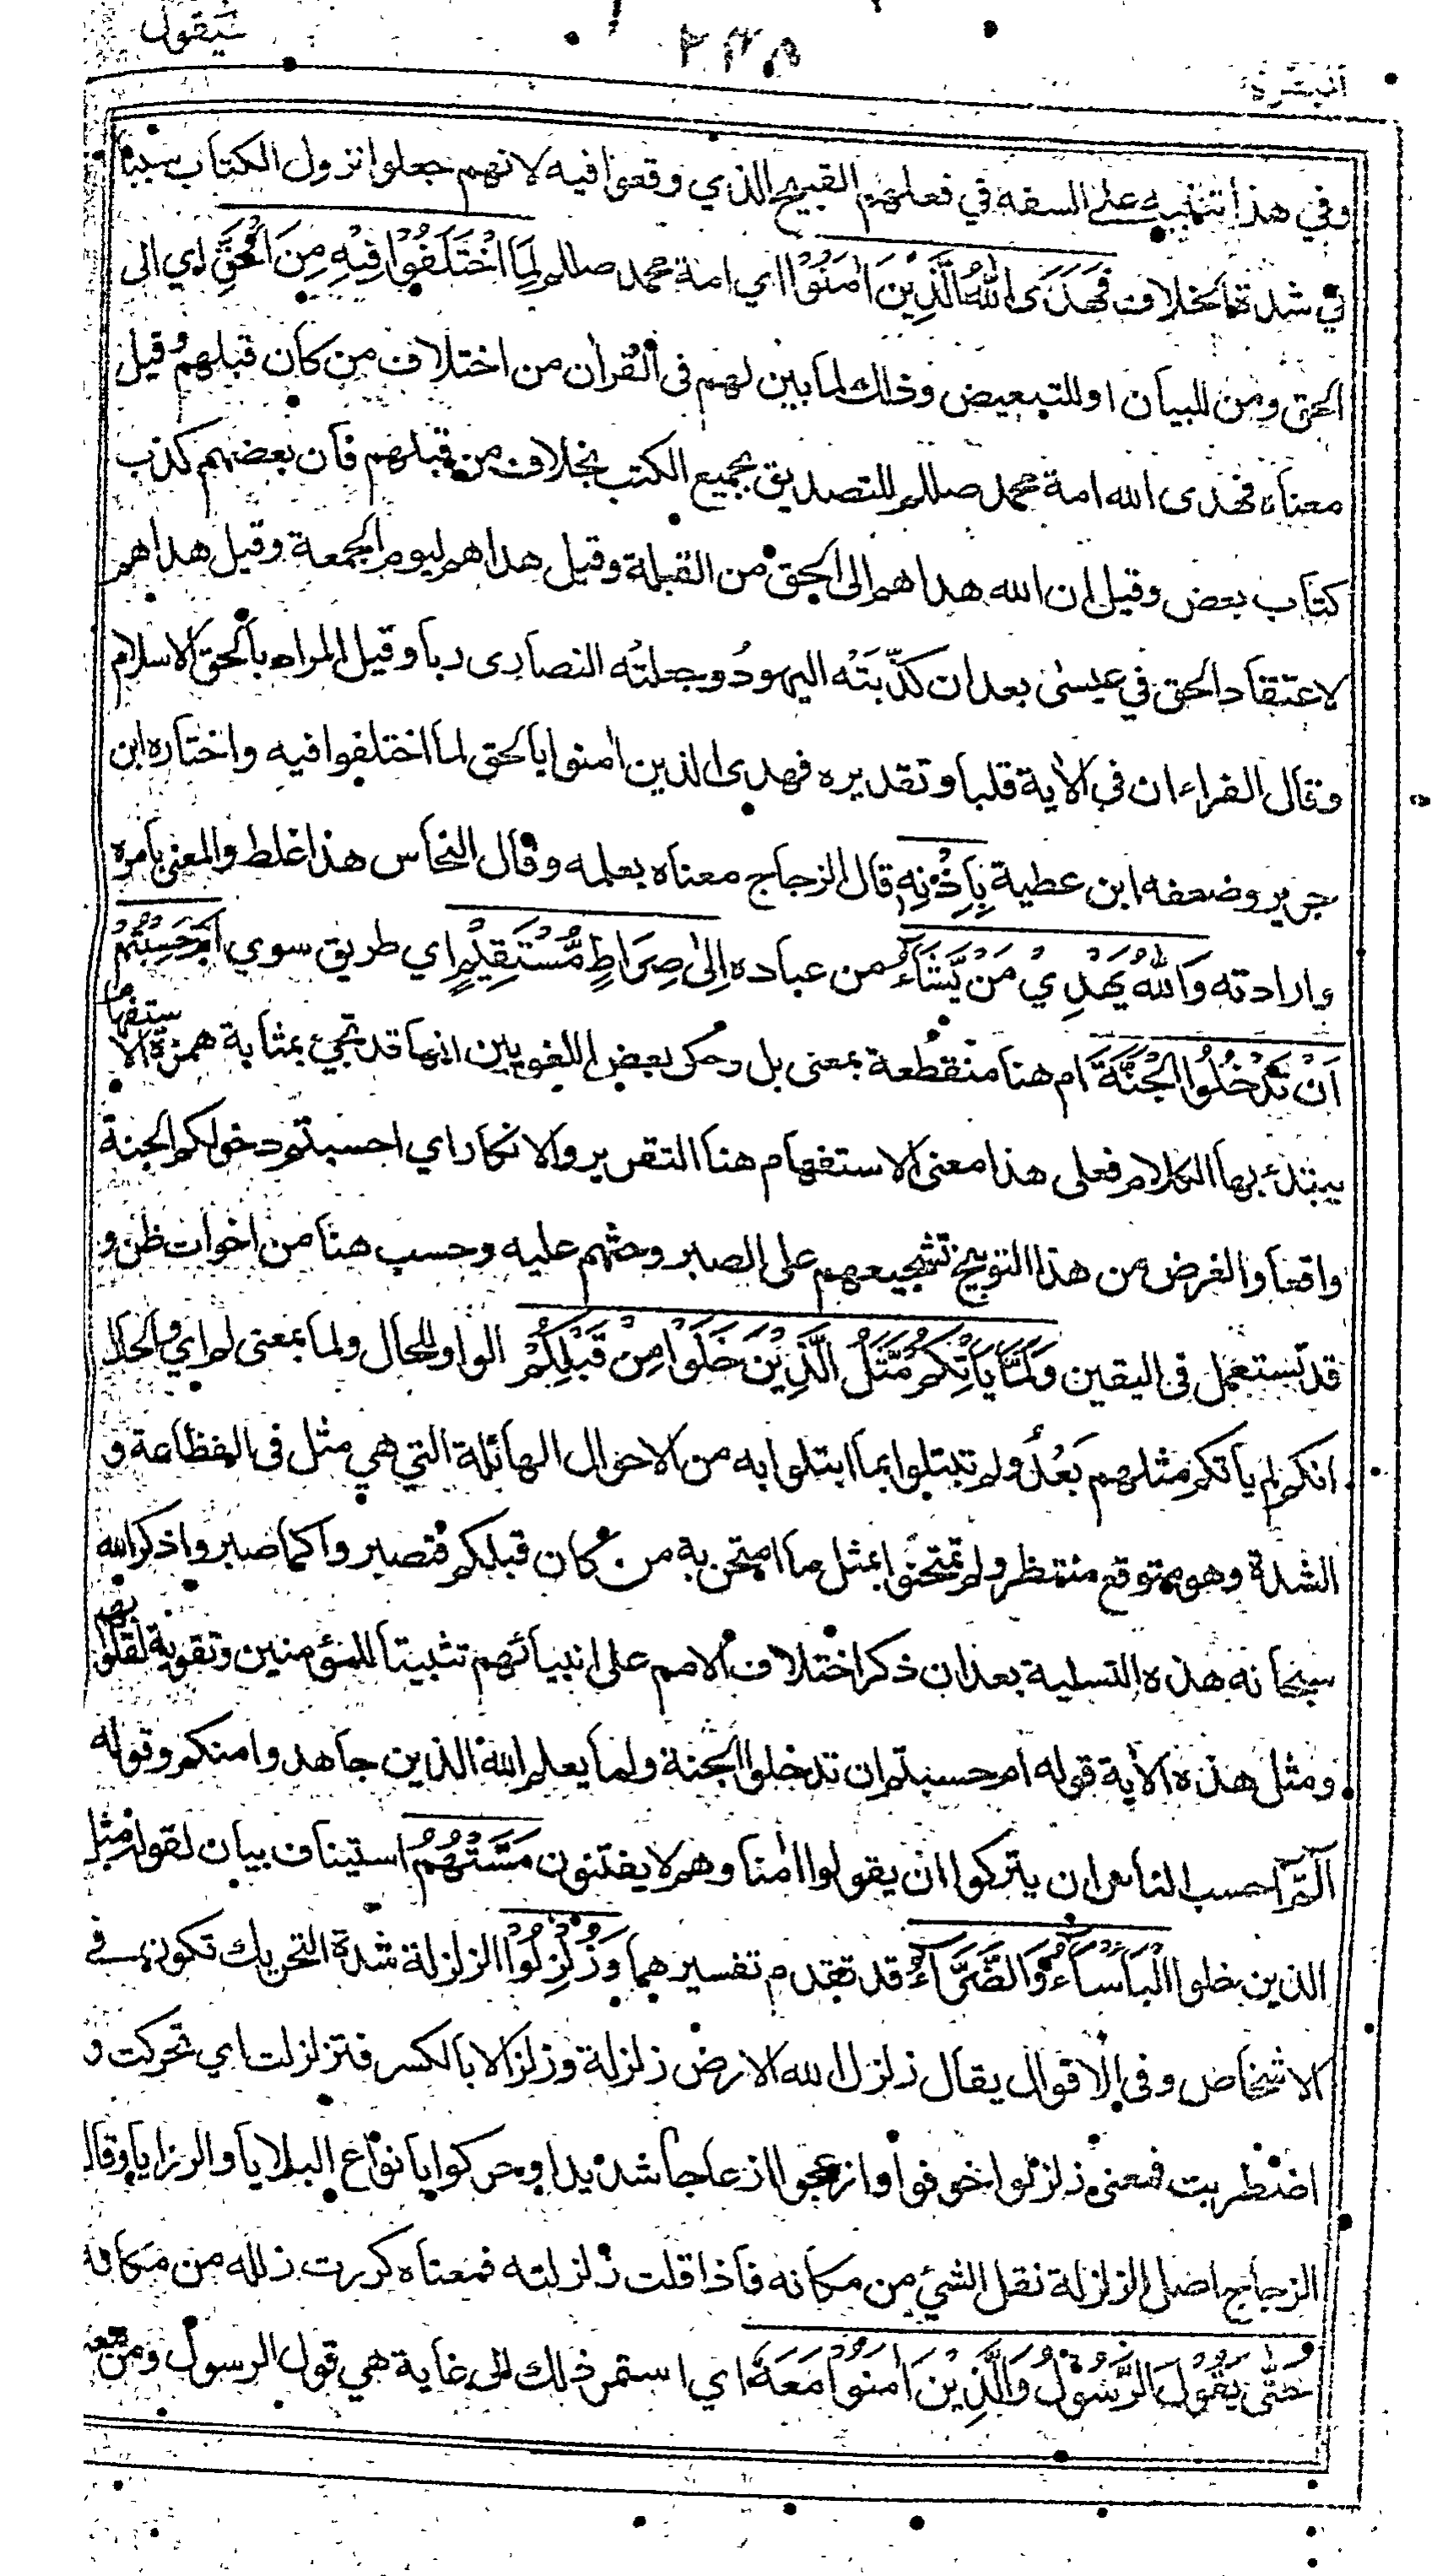 سيقول
٢٧٨
البقرة
وفي هذا تنبيه على السفه في فعلهم القبيح الذي وقعوا فيه لانهم جعلوا نزول الكتاب سببا
في شدة الخلاف فَهَدَى اللهُ الَّذِيْنَ اٰمَنُوْا اي امة محمد صللم لِمَا اخْتَلَفُوْا فِيْهِ مِنَ الْحَقِّ اي الى
الحق ومن للبيان او للتبعيض وذلك لما بين لهم فى القران من اختلاف من كان قبلهم قيل
معناه فهدى الله امة محمد صللم للتصديق بجميع الكتب بخلاف من قبلهم فان بعضهم كذب
كتاب بعض وقيل ان الله هداهم الى الحق من القبلة وقيل هداهم ليوم الجمعة وقيل هداهم
لاعتقاد الحق في عيسى بعد ان كذّبَتْه اليهودُ وجعلتْه النصارى ربا وقيل المراد بالحق الاسلام
وقال الفراء ان في الاٰية قلبا وتقديره فهدى الذين اٰمنوا بالحق لما اختلفوا فيه واختاره ابن
جرير وضعفه ابن عطية بِاِذْنِهٖ قال الزجاج معناه بعلمه وقال النحاس هذا غلط والمعنى بامره
وارادته وَاللهُ يَهْدِيْ مَنْ يَّشَآءُ من عباده اِلىٰ صِرَاطٍ مُّسْتَقِيْمٍ اي طريق سوي اَمْ حَسِبْتُمْ
اَنْ تَدْخُلُوا الْجَنَّةَ ام هنا منقطعة بمعنى بل وحكى بعض اللغويين انها قد تجيء بمثابة همزة الاستفهام
يبتدء بها الكلام فعلى هذا معنى الاستفهام هنا التقرير والانكار اي احسبتم دخولكم الجنة
واقعا والغرض من هذا التوبيخ تشجيعهم على الصبر وحثهم عليه وحسب هنا من اخوات ظن و
قد تستعمل فى اليقين وَلَمَّا يَاْتِكُمْ مَّثَلُ الَّذِيْنَ خَلَوْا مِنْ قَبْلِكُمْ الواو للحال ولما بمعنى لم اي والحال
انكم لم ياتكم مثلهم بَعْدُ ولم تبتلوا بما ابتلوا به من الاحوال الهائلة التي هي مثل فى الفظاعة و
الشدة وهو متوقع منتظر ولم تمتحنوا بمثل ما امتحن به من كان قبلكم فتصبروا كما صبروا ذكر الله
سبحانه هذه التسلية بعد ان ذكر اختلاف الامم على انبيائهم تثبيتا للمؤمنين وتقوية لقلوبهم
ومثل هذه الاٰية قوله ام حسبتم ان تدخلوا الجنة ولما يعلم الله الذين جاهدوا منكم وقوله
آلٓمّٓ احسب الناس ان يتركوا ان يقولوا اٰمنا وهم لا يفتنون مَسَّتْهُمُ استيناف بيان لقوله مثل
الذين خلوا الْبَاْسَآءُ وَالضَّرَّآءُ قد تقدم تفسيرهما وَزُلْزِلُوْا الزلزلة شدة التحريك تكون في
الاشخاص وفى الاقوال يقال زلزل الله الارض زلزلة وزلزالا بالكسر فتزلزلت اي تحركت و
اضطربت فمعنى زلزلوا خوفوا وازعجوا ازعاجا شديدا وحركوا بانواع البلايا والرزايا وقال
الزجاج اصل الزلزلة نقل الشيء من مكانه فاذا قلت زلزلته فمعناه كررت زلله من مكانه
حَتّٰى يَقُوْلَ الرَّسُوْلُ وَالَّذِيْنَ اٰمَنُوْا مَعَهٗ اي استمر ذلك الى غاية هي قول الرسول ومن معه